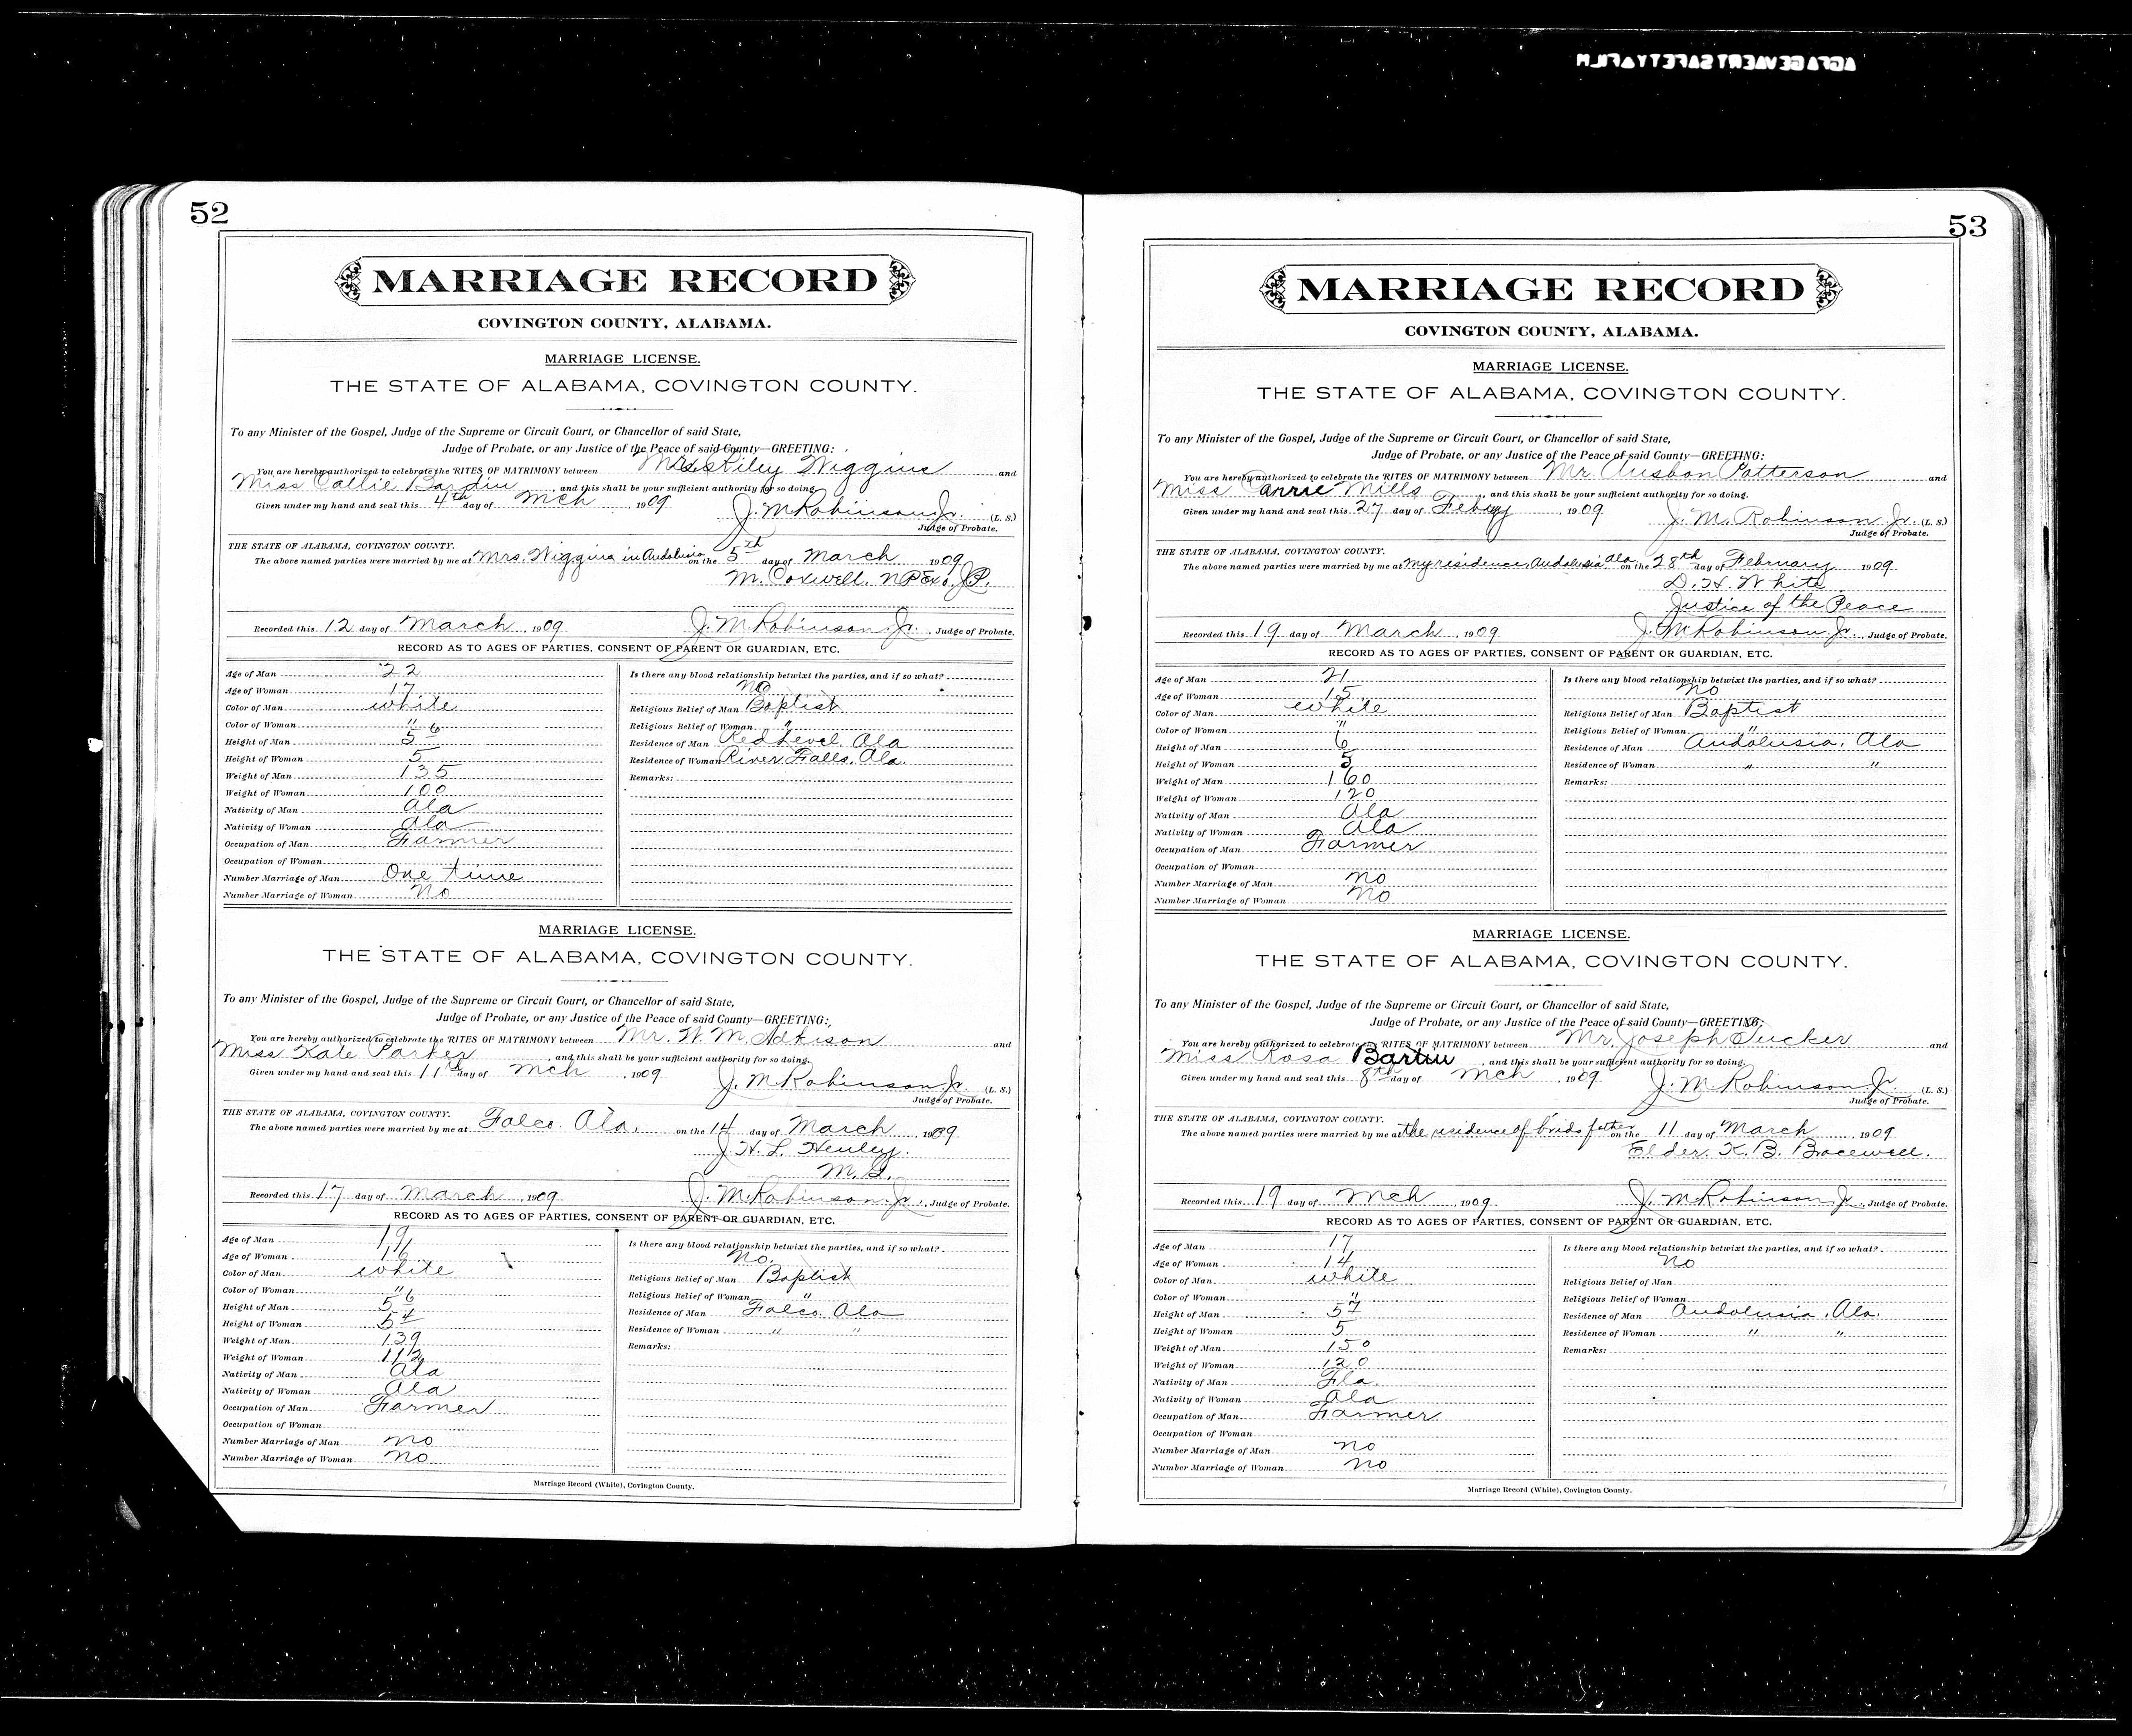 52
MARRIAGE RECORD
COVINGTON COUNTY, ALABAMA.
MARRIAGE LICENSE.
THE STATE OF ALABAMA, COVINGTON COUNTY.
To any Minister of the Gospel, Judge of the Supreme or Circuit Court, or Chancellor of said State,
Judge of Probate, or any Justice of the Peace of said County—GREETING:
You are hereby authorized to celebrate the RITES OF MATRIMONY between Riley Wiggins and
Miss Callie Bardin, and this shall be your sufficient authority for so doing.
Given under my hand and seal this 4th day of Mch, 1909 J. M. Robinson Jr. (L. S.)
Judge of Probate.
THE STATE OF ALABAMA, COVINGTON COUNTY.
The above named parties were married by me at Mrs. Wiggins in Andalusia on the 5th day of March 1909
M. Coxwell. N P Exo. J.P.
Recorded this 12 day of March, 1909 J. M. Robinson. Jr., Judge of Probate.
RECORD AS TO AGES OF PARTIES, CONSENT OF PARENT OR GUARDIAN, ETC.
Age of Man 22
Age of Woman 17
Color of Man white
Color of Woman "
Height of Man 5 6
Height of Woman 5
Weight of Man 135
Weight of Woman 100
Nativity of Man Ala
Nativity of Woman Ala
Occupation of Man Farmer
Occupation of Woman
Number Marriage of Man One time
Number Marriage of Woman No
Is there any blood relationship betwixt the parties, and if so what?
No
Religious Belief of Man Baptist
Religious Belief of Woman "
Residence of Man Red Level. Ala
Residence of Woman River Falls. Ala.
Remarks:
MARRIAGE LICENSE.
THE STATE OF ALABAMA, COVINGTON COUNTY.
To any Minister of the Gospel, Judge of the Supreme or Circuit Court, or Chancellor of said State,
Judge of Probate, or any Justice of the Peace of said County—GREETING:
You are hereby authorized to celebrate the RITES OF MATRIMONY between Mr. W. M. Adkison and
Miss Kate Parker, and this shall be your sufficient authority for so doing.
Given under my hand and seal this 11th day of Mch, 1909 J. M. Robinson, Jr. (L. S.)
Judge of Probate.
THE STATE OF ALABAMA, COVINGTON COUNTY.
The above named parties were married by me at Falco. Ala. on the 14 day of March, 1909
J. H. L. Henley.
M. G.
Recorded this 17 day of March, 1909 J. M. Robinson. Jr., Judge of Probate.
RECORD AS TO AGES OF PARTIES, CONSENT OF PARENT OR GUARDIAN, ETC.
Age of Man 19
Age of Woman 16
Color of Man white
Color of Woman "
Height of Man 5 6
Height of Woman 5 4
Weight of Man 139
Weight of Woman 112
Nativity of Man Ala
Nativity of Woman Ala
Occupation of Man Farmer
Occupation of Woman
Number Marriage of Man no
Number Marriage of Woman no
Is there any blood relationship betwixt the parties, and if so what?
No.
Religious Belief of Man Baptist
Religious Belief of Woman "
Residence of Man Falco. Ala
Residence of Woman " "
Remarks:
Marriage Record (White), Covington County.
53
MARRIAGE RECORD
COVINGTON COUNTY, ALABAMA.
MARRIAGE LICENSE.
THE STATE OF ALABAMA, COVINGTON COUNTY.
To any Minister of the Gospel, Judge of the Supreme or Circuit Court, or Chancellor of said State,
Judge of Probate, or any Justice of the Peace of said County—GREETING:
You are hereby authorized to celebrate the RITES OF MATRIMONY between Mr. Ausbon Patterson and
Miss Carrie Mills, and this shall be your sufficient authority for so doing.
Given under my hand and seal this 27 day of Feby, 1909. J. M. Robinson Jr. (L. S.)
Judge of Probate.
THE STATE OF ALABAMA, COVINGTON COUNTY.
The above named parties were married by me at my residence, Andalusia Ala on the 28th day of February 1909.
D. H. White
Justice of the Peace
Recorded this 19 day of March, 1909 J. M. Robinson. Jr., Judge of Probate.
RECORD AS TO AGES OF PARTIES, CONSENT OF PARENT OR GUARDIAN, ETC.
Age of Man 21
Age of Woman 15
Color of Man white
Color of Woman "
Height of Man 6
Height of Woman 5
Weight of Man 160
Weight of Woman 120
Nativity of Man Ala
Nativity of Woman Ala
Occupation of Man Farmer
Occupation of Woman
Number Marriage of Man no
Number Marriage of Woman no
Is there any blood relationship betwixt the parties, and if so what?
No
Religious Belief of Man Baptist
Religious Belief of Woman "
Residence of Man Andalusia. Ala
Residence of Woman " "
Remarks:
MARRIAGE LICENSE.
THE STATE OF ALABAMA, COVINGTON COUNTY.
To any Minister of the Gospel, Judge of the Supreme or Circuit Court, or Chancellor of said State,
Judge of Probate, or any Justice of the Peace of said County—GREETING:
You are hereby authorized to celebrate the RITES OF MATRIMONY between Mr. Joseph Tucker and
Miss Rosa Bartin, and this shall be your sufficient authority for so doing.
Given under my hand and seal this 8th day of Mch, 1909. J. M. Robinson, Jr. (L. S.)
Judge of Probate.
THE STATE OF ALABAMA, COVINGTON COUNTY.
The above named parties were married by me at the residence of brids father on the 11 day of March, 1909
Elder. K. B. Bracewell.
Recorded this 19 day of Mch, 1909 J. M. Robinson, Jr., Judge of Probate.
RECORD AS TO AGES OF PARTIES, CONSENT OF PARENT OR GUARDIAN, ETC.
Age of Man 17
Age of Woman 14
Color of Man white
Color of Woman "
Height of Man 5 7
Height of Woman 5
Weight of Man 150
Weight of Woman 120
Nativity of Man Fla
Nativity of Woman Ala
Occupation of Man Farmer
Occupation of Woman
Number Marriage of Man no
Number Marriage of Woman no
Is there any blood relationship betwixt the parties, and if so what?
No
Religious Belief of Man
Religious Belief of Woman
Residence of Man Andalusia. Ala.
Residence of Woman " "
Remarks:
Marriage Record (White), Covington County.